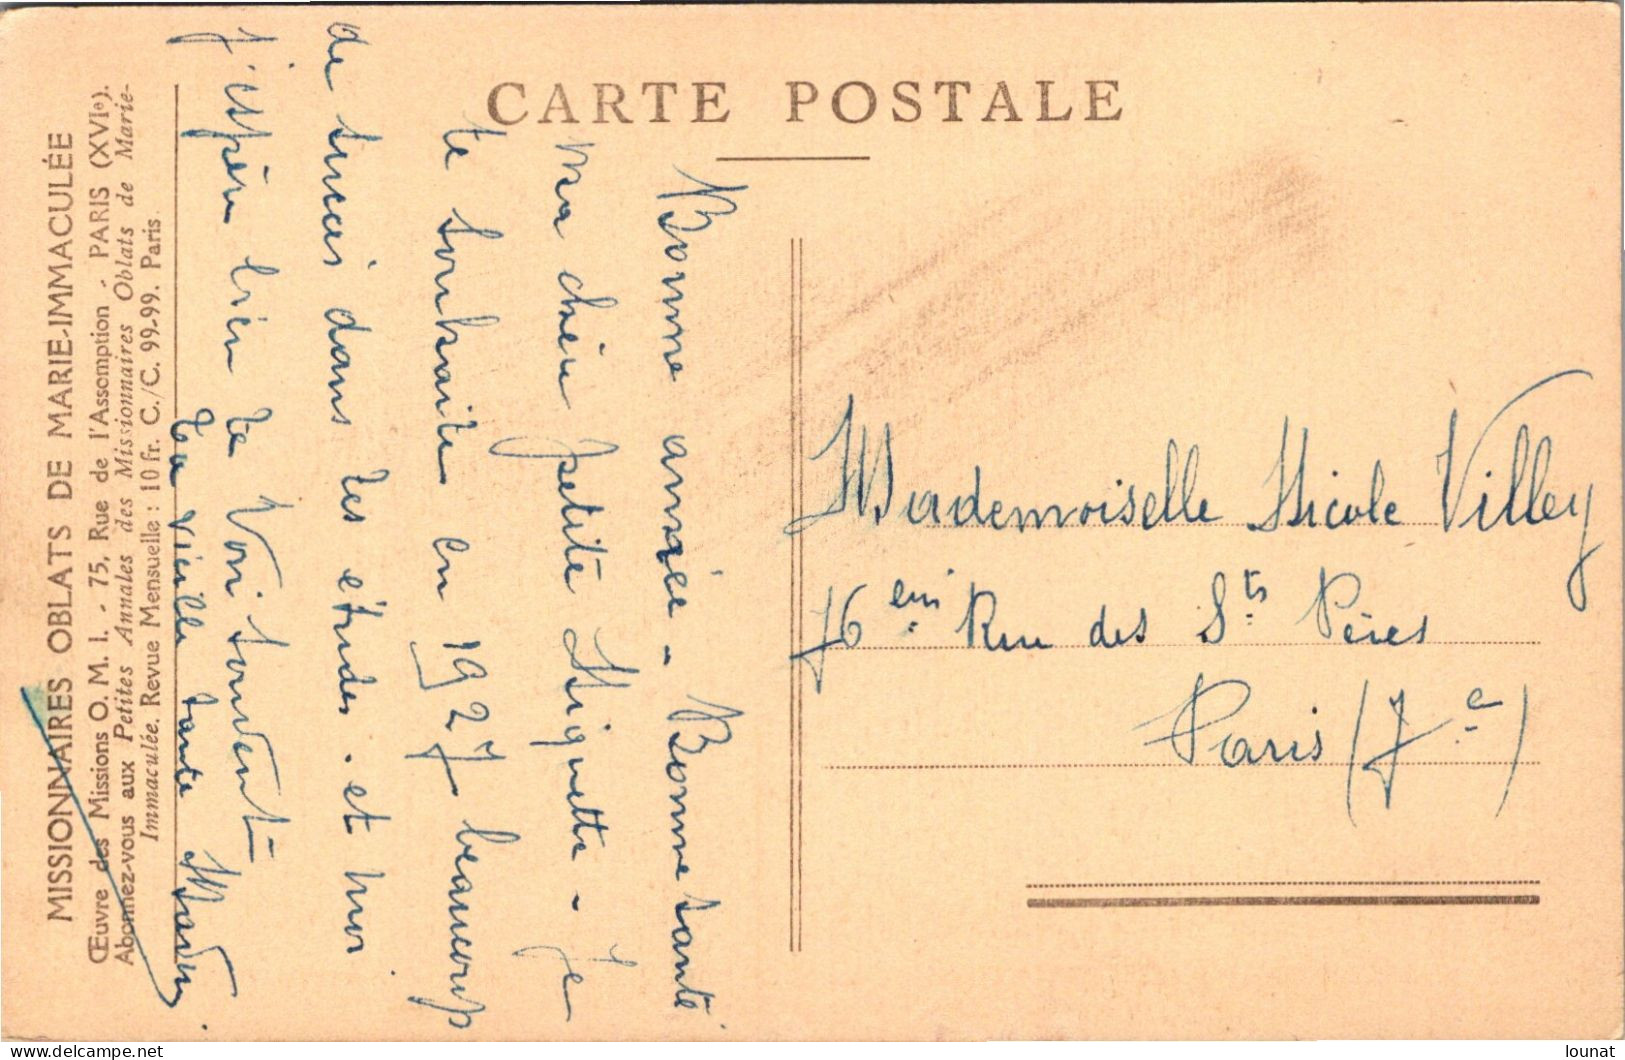 CARTE POSTALE
MISSIONNAIRES OBLATS DE MARIE-IMMACULÉE
Œuvre des Missions O. M. I. - 75, Rue de l'Assomption - PARIS (XVIe).
Abonnez-vous aux Petites Annales des Missionnaires Oblats de Marie-
Immaculée. Revue Mensuelle : 10 fr. C./C. 99-99. Paris.
Bonne année - Bonne santé
ma chère petite Niquette - Je
te souhaite en 1927 beaucoup
de succès dans tes études. et moi
j'espère bien te voir souvent -
ta vieille tante
Mademoiselle Nicole Villey
76 Rue des Sts Pères
Paris (7e)
www.delcampe.net
lounat